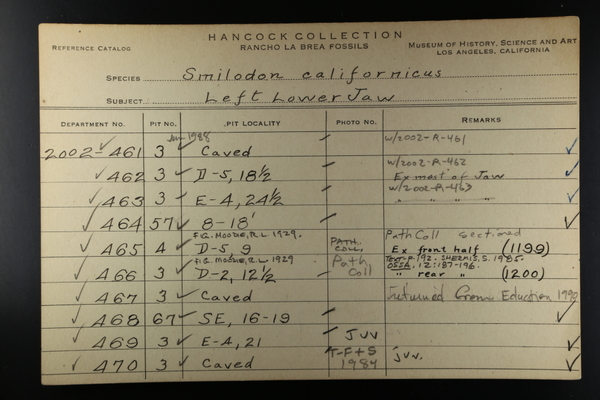 HANCOCK COLLECTION
REFERENCE CATALOG RANCHO LA BREA FOSSILS MUSEUM OF HISTORY, SCIENCE AND ART
LOS ANGELES, CALIFORNIA
SPECIES Smilodon californicus
SUBJECT Left Lower Jaw
DEPARTMENT NO. PIT NO. PIT LOCALITY PHOTO NO. REMARKS
1988 w/2002-R-461
2002-461 3 Caved
w/2002-R-462
462 3 D-5, 18½ Ex most of Jaw
w/2002-R-463
463 3 E-4, 24½ " " "
464 57 8-18'
FIG. MOODIE, R.L 1929. Path Coll sectioned
465 4 D-5, 9 PATH. COLL, Ex front half (1199)
FIG. MOODIE, R.L 1929 P. 192. SHERMIS, S. 1985.
OSSA. 12:187-196.
466 3 D-2, 12½ Path Coll " rear " (1200)
467 3 Caved returned from Education
468 67 SE, 16-19
469 3 E-4, 21 JUV
470 3 Caved T-F+S 1984 juv.